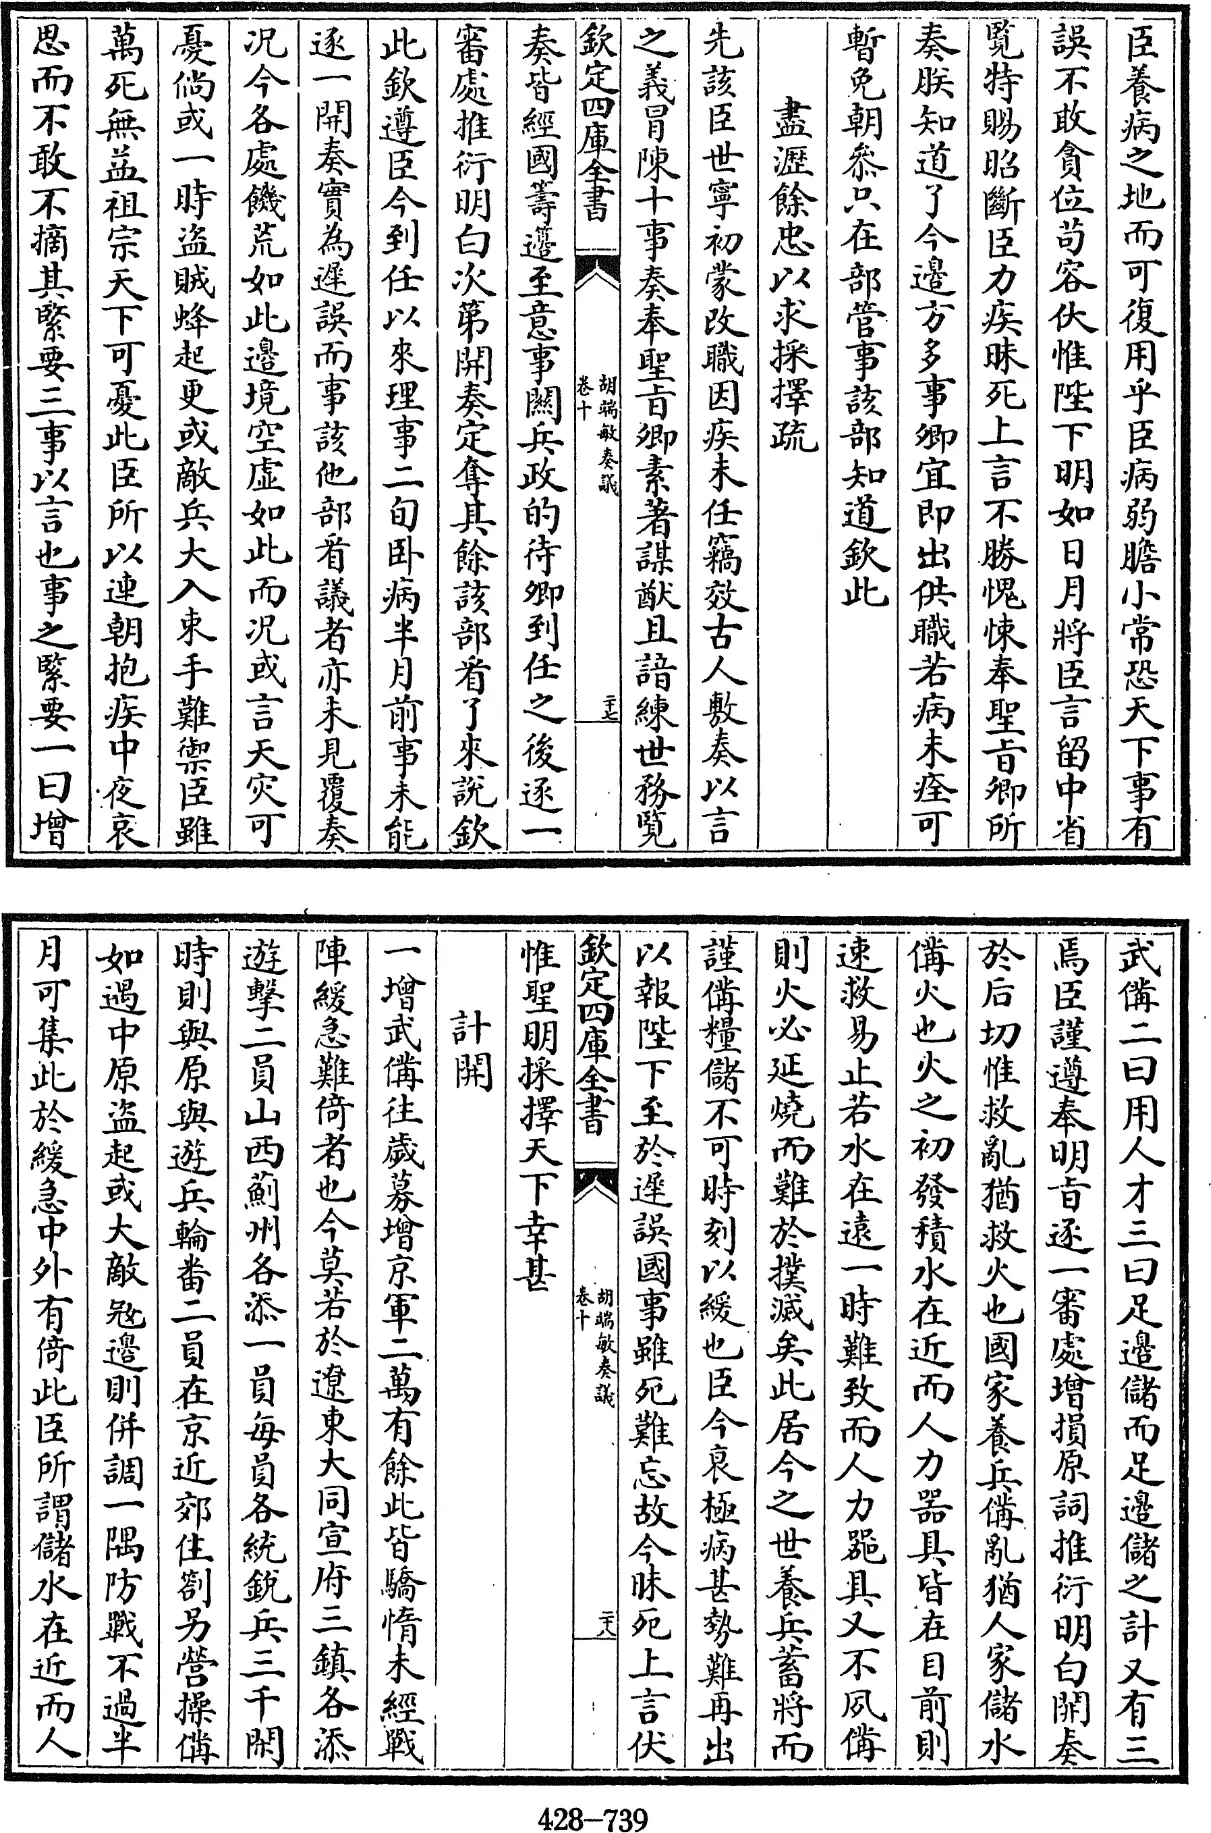 臣養病之地而可復用乎臣病弱膽小常恐天下事有
誤不敢貪位苟容伏惟陛下明如日月將臣言留中省
覽特賜昭斷臣力疾昧死上言不勝愧悚奉聖旨卿所
奏朕知道了今邊方多事卿宜即出供職若病未痊可
暫免朝叅只在部管事該部知道欽此
盡瀝餘忠以求採擇疏
先該臣世寧初蒙改職因疾未任竊效古人敷奏以言
之義冒陳十事奏奉聖旨卿素著謀猷且諳練世務覽
欽定四庫全書
胡端敏奏議
卷十
二十七
奏皆經國籌邊至意事關兵政的待卿到任之後逐一
審處推衍明白次第開奏定奪其餘該部看了來說欽
此欽遵臣今到任以來理事二旬卧病半月前事未能
逐一開奏實為遲誤而事該他部看議者亦未見覆奏
况今各處饑荒如此邊境空虛如此而况或言天災可
憂倘或一時盜賊蜂起更或敵兵大入束手難禦臣雖
萬死無益祖宗天下可憂此臣所以連朝抱疾中夜哀
思而不敢不摘其緊要三事以言也事之緊要一曰增
武備二曰用人才三曰足邊儲而足邊儲之計又有三
焉臣謹遵奉明旨逐一審處增損原詞推衍明白開奏
於后切惟救亂猶救火也國家養兵備亂猶人家儲水
備火也火之初發積水在近而人力器具皆在目前則
速救易止若水在遠一時難致而人力器具又不夙備
則火必延燒而難於撲滅矣此居今之世養兵蓄將而
謹備糧儲不可時刻以緩也臣今衰極病甚勢難再出
以報陛下至於遲誤國事雖死難忘故今昧死上言伏
欽定四庫全書
胡端敏奏議
卷十
二十八
惟聖明採擇天下幸甚
計開
一增武備往歲募增京軍二萬有餘此皆驕惰未經戰
陣緩急難倚者也今莫若於遼東大同宣府三鎮各添
遊擊二員山西薊州各添一員每員各統銳兵三千閑
時則與原與遊兵輪畨二員在京近郊住劄另營操備
如遇中原盜起或大敵冦邊則併調一隅防戰不過半
月可集此於緩急中外有倚此臣所謂儲水在近而人
428-739